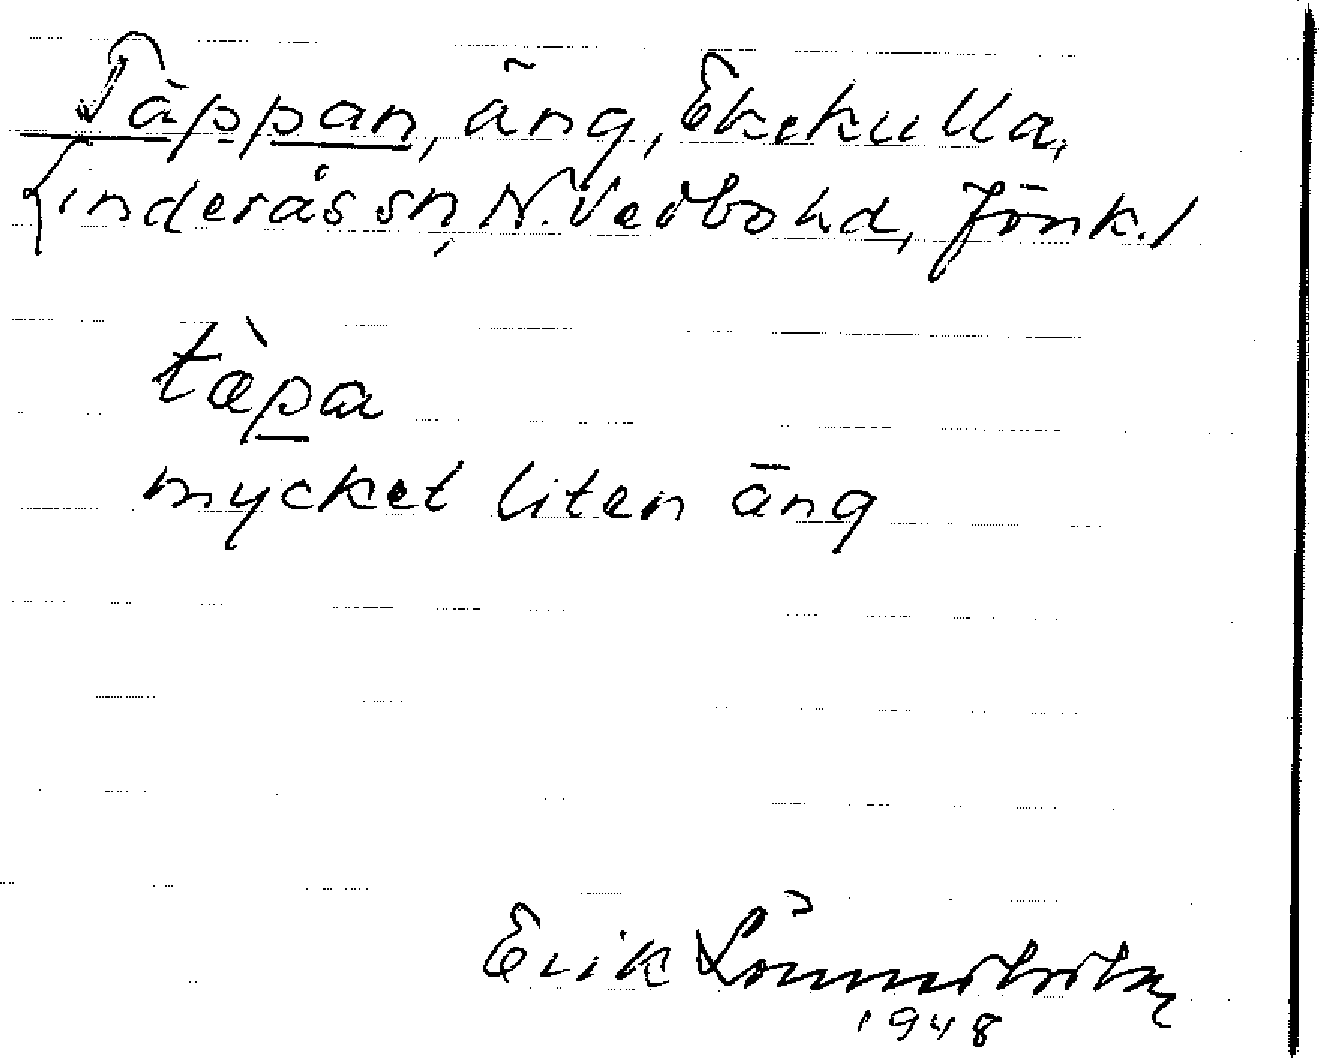 Täppan, äng, Ekekulla,
Linderås sn, N. Vedbo hd, Jönk. l
tæ̀pa
mycket liten äng
Erik
1948